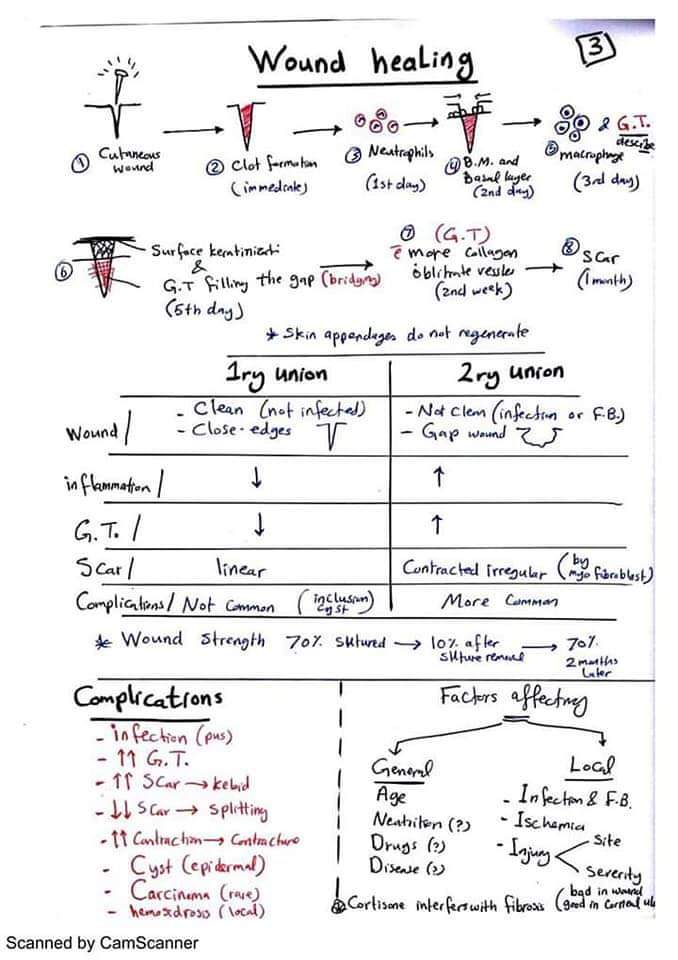 Wound healing
3
① Cutaneous wound
② Clot formation (immediate)
③ Neutrophils (1st day)
④ B.M. and Basal layer (2nd day)
⑤ macrophage & G.T. describe (3rd day)
⑥ Surface keratinizati & G.T filling the gap (bridging) (5th day)
⑦ (G.T) c̄ more collagen oblitrate vessles (2nd week)
⑧ Scar (1 month)
* Skin appendages do not regenerate
1ry union 2ry union
Wound/ - Clean (not infected) - Not Clean (infection or F.B.)
- Close-edges - Gap wound
inflammation/ ↓ ↑
G.T./ ↓ ↑
Scar/ linear Contracted irregular (by myofibroblast)
Complications/ Not Common (inclusion cyst) More Common
* Wound Strength 70% sutured → 10% after suture removal → 70% 2 months later
Complications
- infection (pus)
- ↑↑ G.T.
- ↑↑ Scar → keloid
- ↓↓ Scar → splitting
- ↑↑ Contraction → Contracture
- Cyst (epidermal)
- Carcinoma (rare)
- hemosidrosis (local)
Factors affecting
General
Age
Neutrition (?)
Drugs (?)
Disease (?)
Local
- Infection & F.B.
- Ischemia
- Injury
Site
Severity
Cortisone interfers with fibrosis (bad in wound good in Corneal ul
Scanned by CamScanner